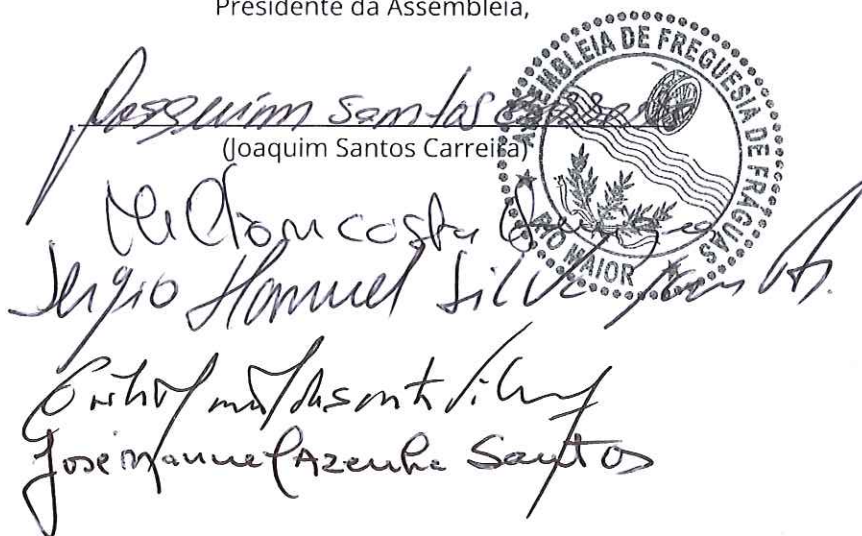 Presidente da Assembleia,
Joaquim Santos
(Joaquim Santos Carreira)
ASSEMBLEIA DE FREGUESIA DE FRÁGUAS
RIO MAIOR
Costa
Sérgio Manuel Silva
José Manuel Azenha Santos